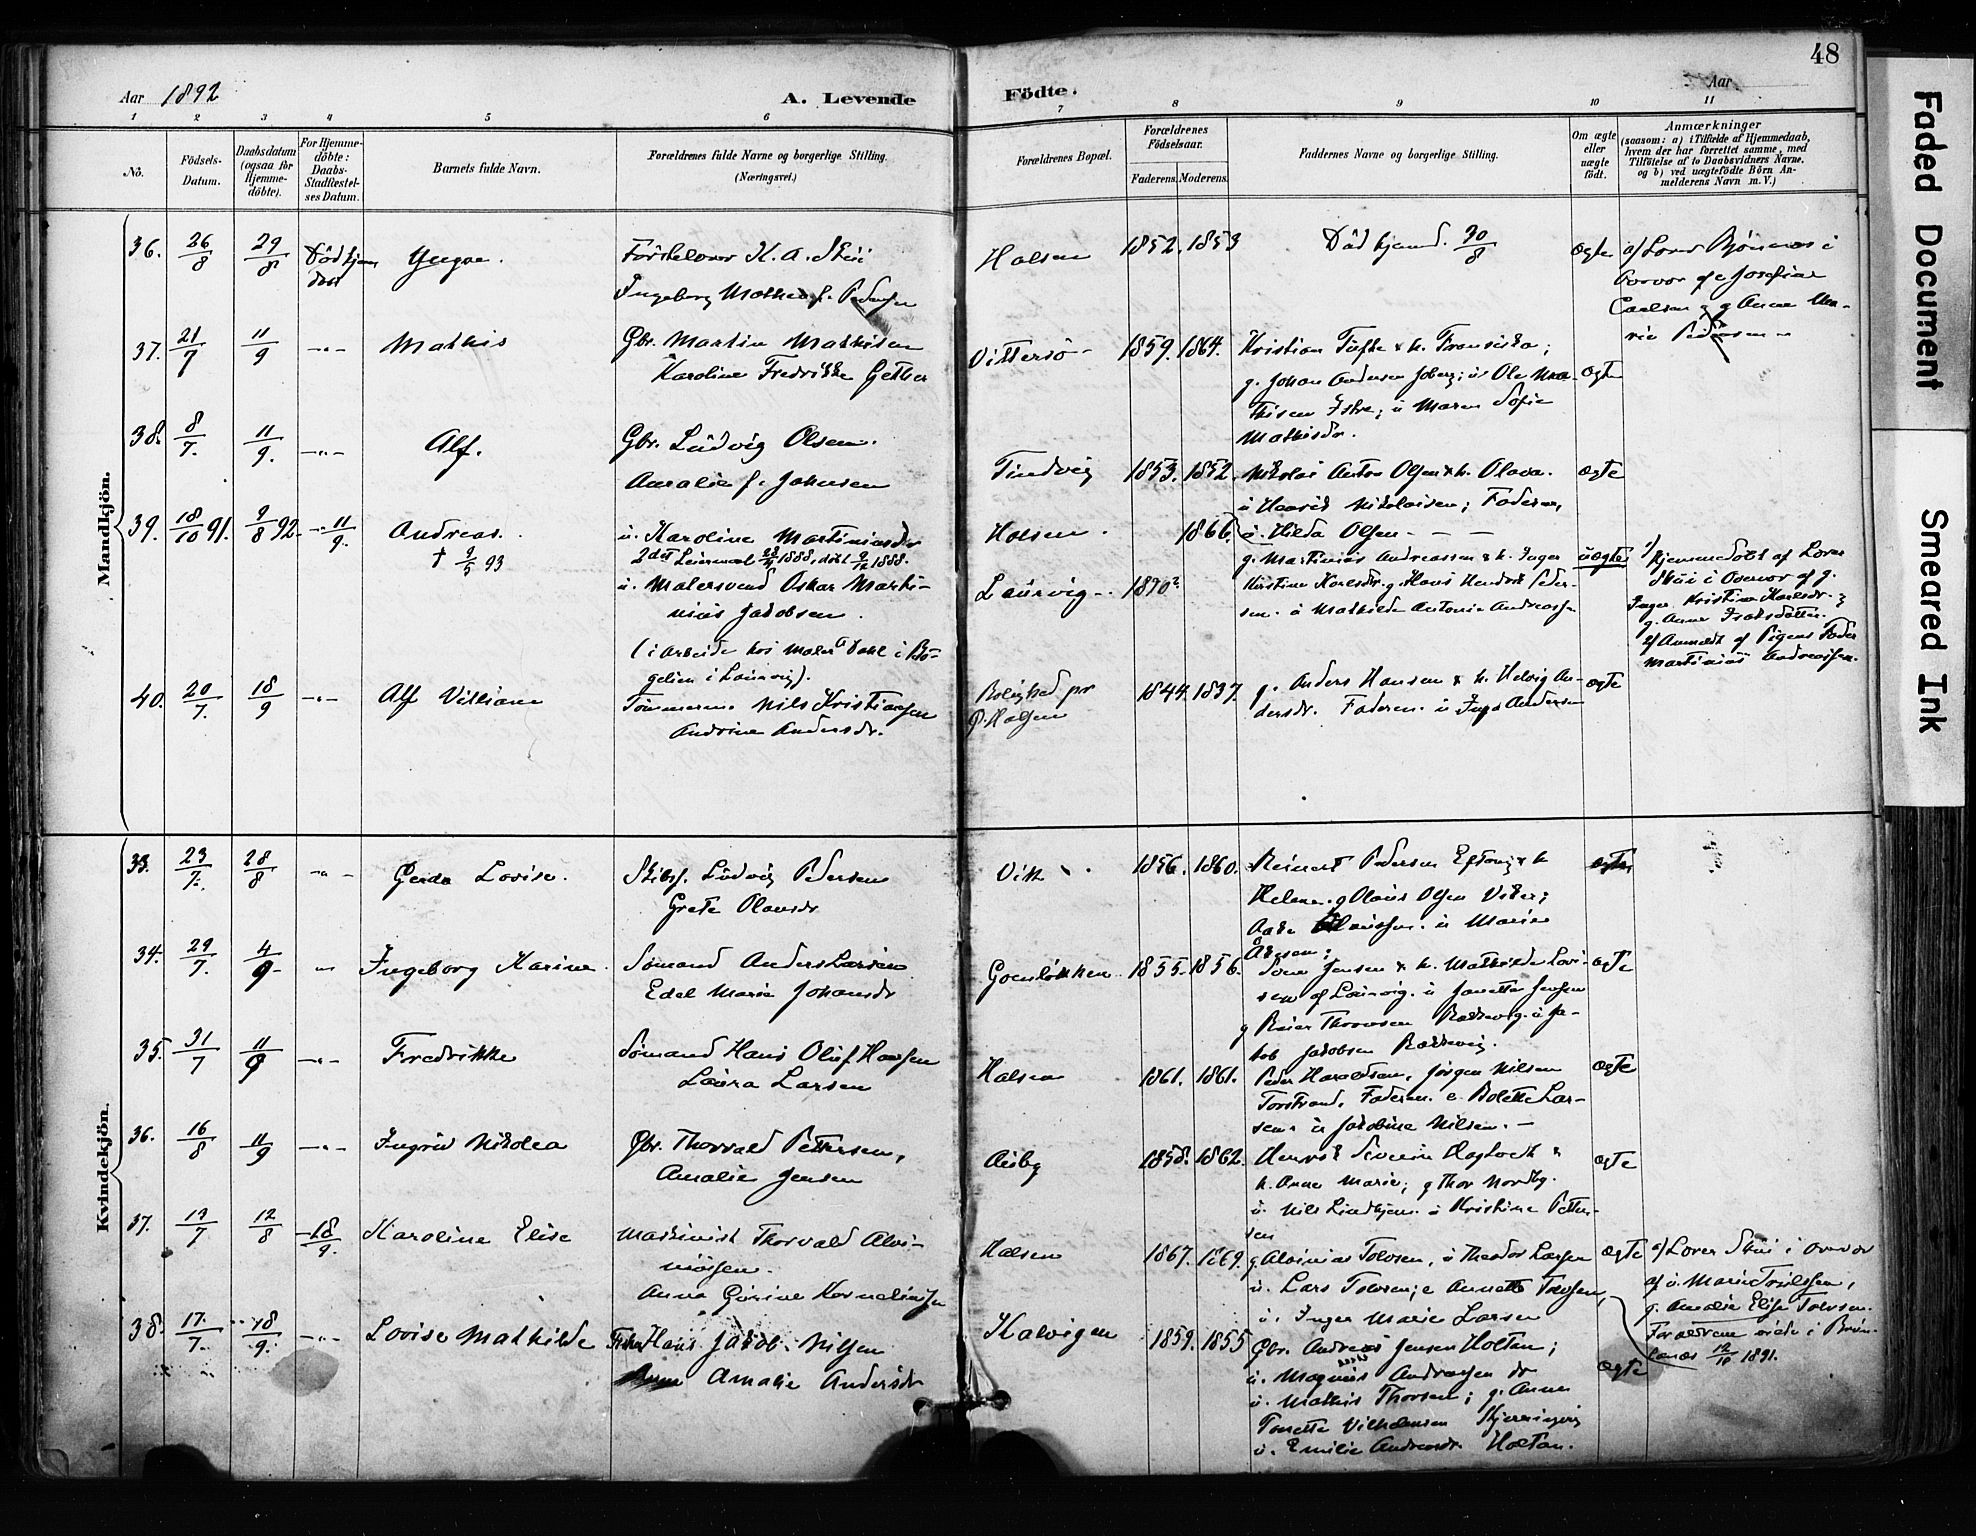 48
Aar 1892
A. Levende
Fødte.
Aar
1 2 3 4 5 6 7 8 9 10 11
No.
Födsels-
Datum.
Daabsdatum
(ogsaa for
Hjemme-
döbte).
For Hjemme-
döbte:
Daabs-
Stadfæstel-
ses Datum.
Barnets fulde Navn.
Forældrenes fulde Navne og borgerlige Stilling.
(Næringsvei.)
Forældrenes Bopæl.
Forældrenes
Födselsaar.
Faderens. Moderens.
Faddernes Navne og borgerlige Stilling.
Om ægte
eller
uægte
födt.
Anmærkninger
(saasom: a) i Tilfælde af Hjemmedaab,
hvem der har forrettet samme, med
Tilföielse af to Daabsvidners Navne.
og b) ved uægtefödte Börn An-
melderens Navn m. V.)
Mandkjön.
36. 26/8 29/8
Yngva.
Ingeborg Mathea f. Pedersen
Halsen 1852. 1853
Död hjemd. 30/8
ægte
Carlsen g Anna Ma-
rie Pedersen
37. 21/7 11/9 -"-
Mathis
Gbr. Martin Mathisen
Karoline Fredrikke Gether
Vittersö 1859. 1864.
Kristian Tufte & h. Fransiska;
g. Johan Andersen
Ole Ma-
thisen Istre; u Maren Sofie
Mathisdr.
ægte
38. 8/7. 11/9. -"-
Alf.
Gbr. Ludvig Olsen.
Amalie f. Johnsen
Tindvig 1853. 1852.
Nikolai Anton Olsen & h. Olava.
u Henrik Nikolaisen; Faderen,
u. Hilda Olsen - - -
ægte
39. 18/10 91. 9/8 92 -"- 11/9.
Andreas.
† 9/5 93
u. Karoline Martiniusdr
2det Leiermaal 1888, 1888.
u. Malersvend Oskar Marti-
nius Jakobsen.
(i Arbeide hos Maler Dahl i Bö-
gelien i Laurvig).
Halsen. 1866
Laurvig. 1870?
g. Martinius Andreassen & h. Inger
Kirstine Karlsdr. g Hans Hendrik Peder-
sen. u Mathilde Antonie Andreass.
uægte
Hjemmedöbt af Lover
Skui i Overvær af g.
Inger Kristine Karlsdr. &
g. Anne Isaksdatter.
Anmeldt af Pigens Fader
Martinius Andreassen.
40. 20/7. 18/9 -"-
Alf Villiam
Tömmerm. Nils Kristiansen
Andrine Andersdr.
Rolighed pr
Halsen
1844. 1837.
g. Anders Hansen & h. Helvig An-
dersdr. Faderen. u Inga Andersen
ægte
Kvindekjön.
33. 23/7. 28/8 -"-
Gerda Lovise.
Skibsf. Ludvig Pedersen
Grete Olausdr
Vik 1856. 1860.
Reinert Pedersen Eftang & h
Helene. g Olaus Olsen Viker;
Aake Olaussen. u Marie
Akesen;
ægte
34. 29/7. 4/9. -"-
Ingeborg Karine.
Sömand Anders Larsen
Edel Marie Johansdr
Goenlökken 1855. 1856.
Sören Jensen & h. Mathilde Lovi-
sen af Laurvig. u Janette Jensen
g Reier Thorvsen
Jakobsen
ægte
35. 31/7 11/9 -"-
Fredrikke
Sömand Hans Oluf Hansen
Laura Larsen
Halsen 1861. 1861.
Peder Haraldsen, Jörgen Nilsen
Torstrand, Faderen. e. Bolette Lar-
sen. u Jakobine Nilsen. -
ægte
36. 16/8 11/9 -"-
Ingrid Nikolea
Gbr. Thorvald Pettersen,
Amalie Jensen
Auby 1858. 1862.
Henrik Severin &
h. Anne Marie; g Thor Nordby.
u. Nils Lindhjem. u Kristine Petter-
sen
ægte
37. 13/7 12/8 18/9.
Karoline Elise
Maskinist Thorvald Alvi-
niusen.
Anna Gurine Korneliusen
Halsen 1867. 1869.
g Alvinius Tolvsen, u Theodor Larsen
u. Lars Tolvsen; e Annette Tolvsen,
u. Inger Marie Larsen
ægte
a) Lover Skui i Overvær
af u. Marie
g. Amalie Elise Tolvsen.
Forældrene viede i Brun-
lanæs 12/10 1891.
38. 17./7. 18/9. -"-
Lovise Mathilde
Fisker Hans Jakob Nilsen
Amalie Andersdr
Kalvigen 1859. 1855
Gbr. Andreas Jensen Holtan;
u. Magnus Andreasen
u. Mathis Thorsen; g. Anne
Tonette Vilhelmsen
u. Emilie Andreasdr. Holtan.
ægte
Faded Document
Smeared Ink